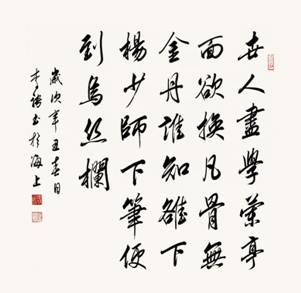 世人盡學蘭亭
面欲換凡骨無
金丹誰知雒下
楊少師下筆便
到烏絲欄
歲次辛丑春日
書於海上